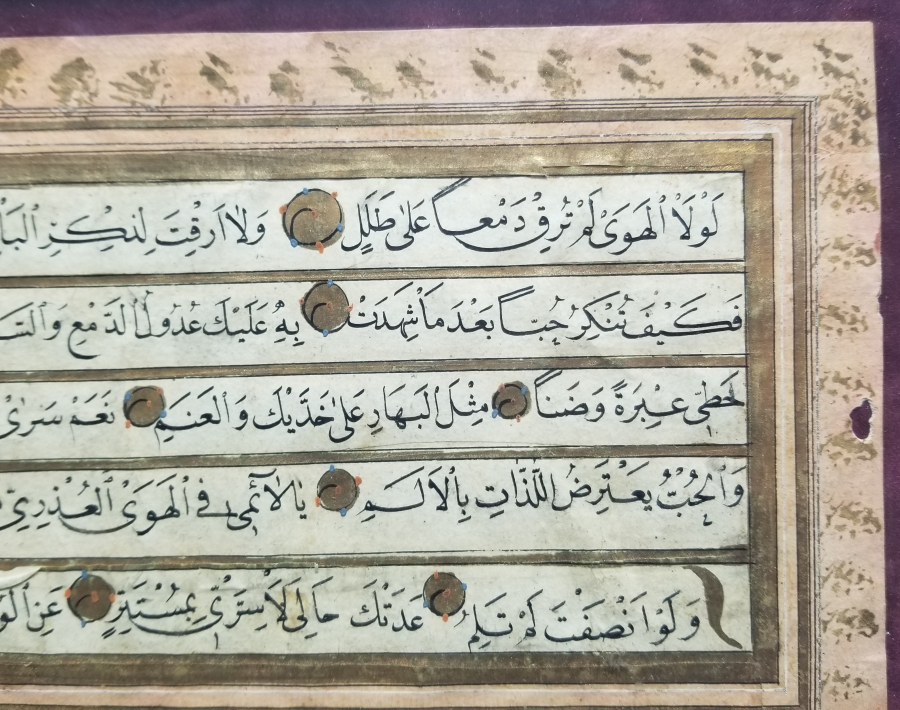 لَوْلَاْ الْهَوَىْ لَمْ تُرِقْ دَمْعاً عَلَىٰ طَلَلٍ وَلَا اَرِقْتَ لِذِكْرِ الْبَانِ
فَكَيْفَ تُنْكِرُ حُبّاً بَعْدَ مَاْ شَهِدَتْ بِهِ عَلَيْكَ عُدُولُ الدَّمْعِ وَالسَّـ
خَطَّيْ عِبْرَةٍ وَضَناً مِثْلَ الْبَهَارِ عَلَىٰ خَدَّيْكَ وَالْعَنَمِ نَعَمْ سَرَىْ
وَالْحُبُّ يَعْتَرِضُ اللَّذَّاتِ بِالْاَلَمِ يَا لَائِمِي فِي الْهَوَىْ الْعُذْرِيِّ
وَلَوْ اَنْصَفْتَ لَمْ تَلُمِ عَدَتْكَ حَالِيَ لَاْ سِرِّيْ بِمُسْتَتِرٍ عَنِ الْوُ